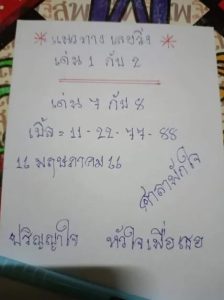 * แนวทาง เลขวิ่ง *
เด่น 1 กับ 2
เด่น 7 กับ 8
เบิ้ล = 11-22-77-88
16 พฤษภาคม 66
ศาลาพักใจ
ปริญญาใจ หัวใจเพื่อเธอ